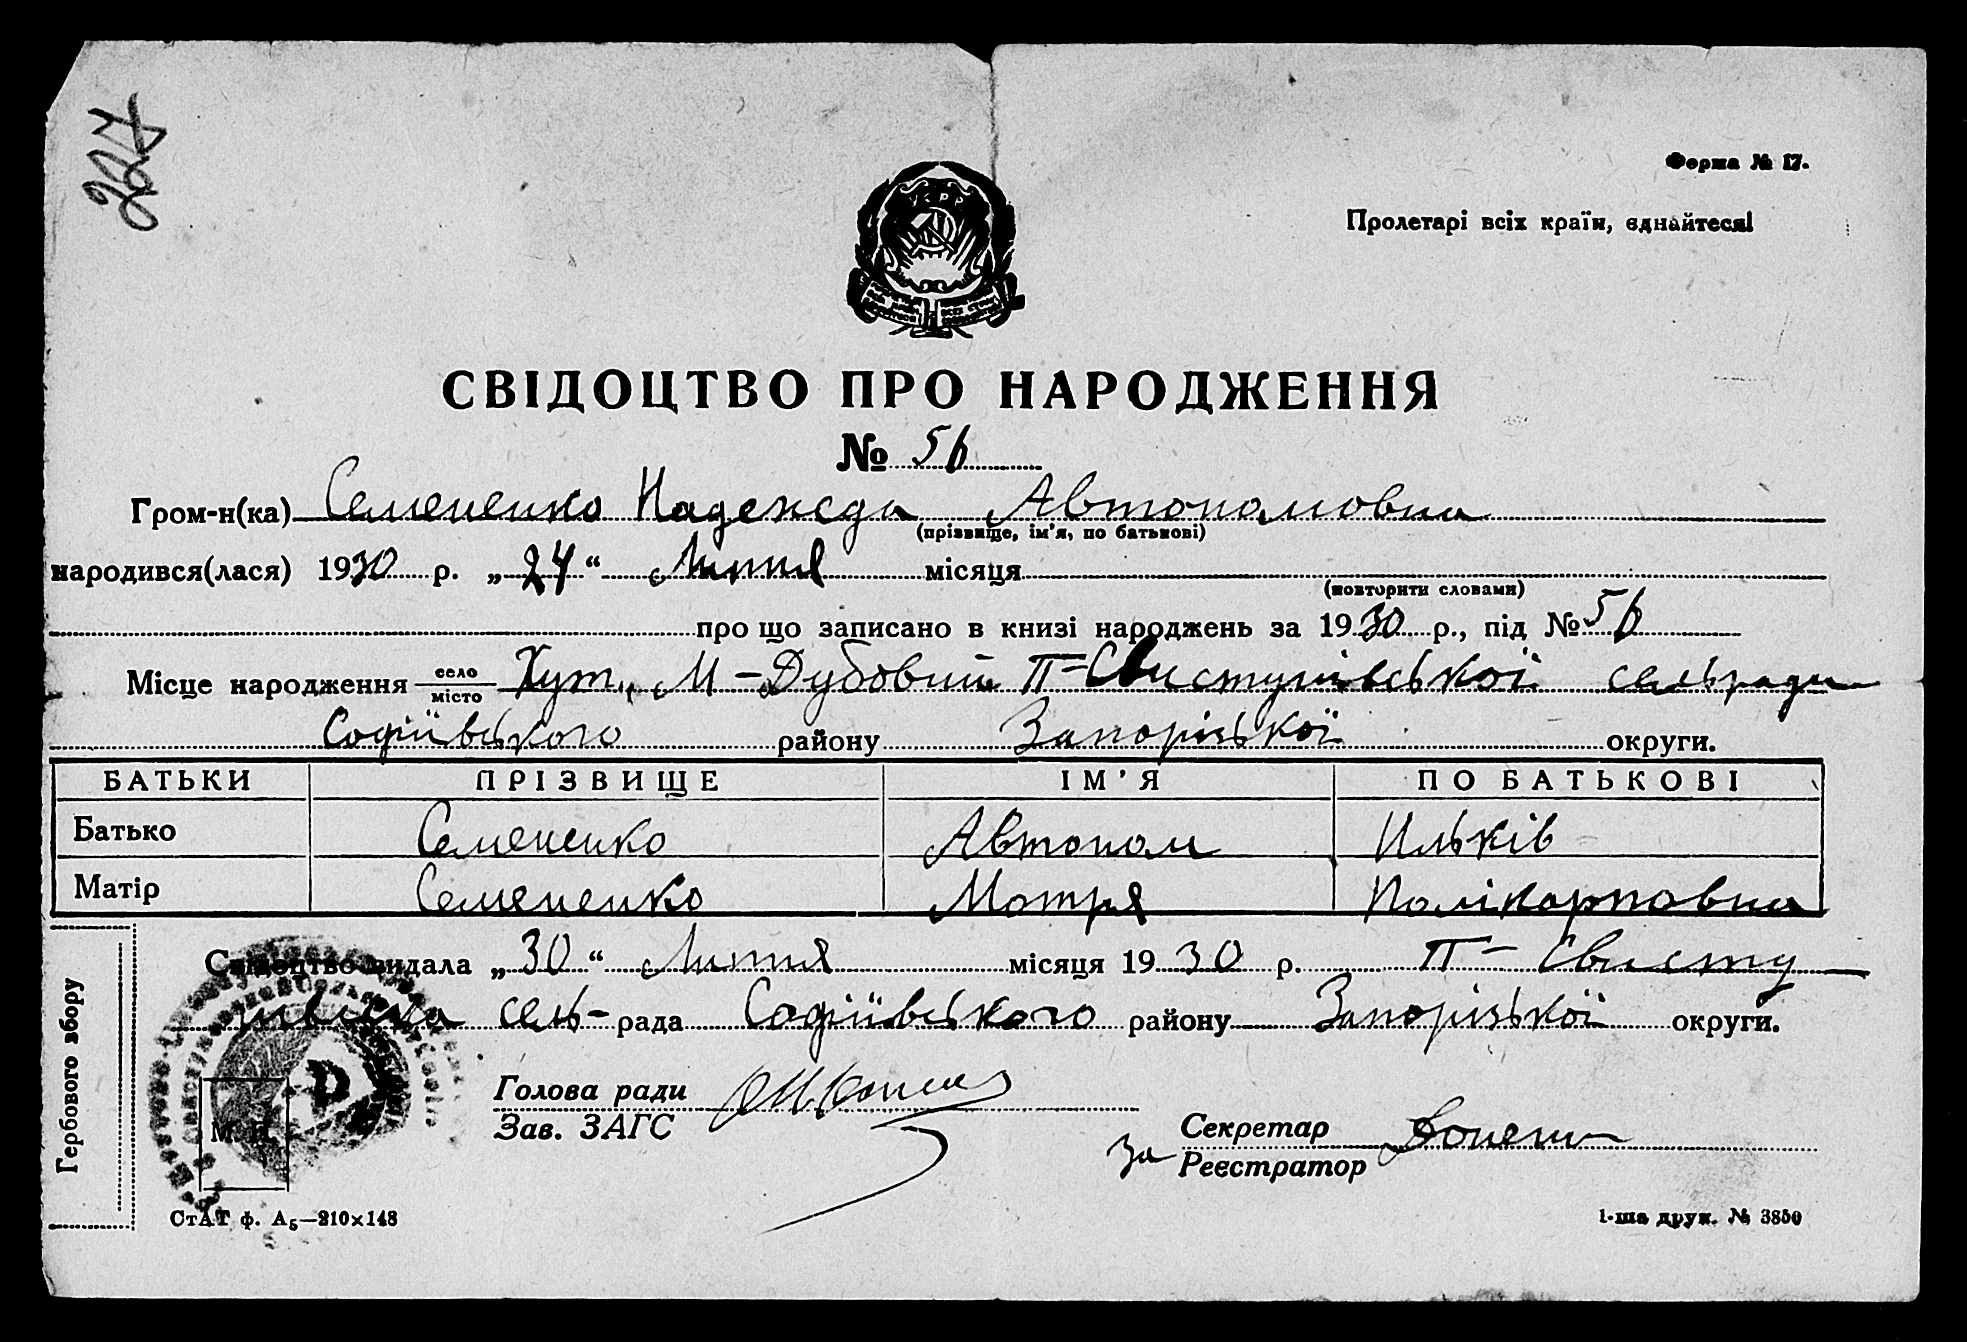 227
Форма № 17.
Пролетарі всіх країн, єднайтеся!
УСРР
СВІДОЦТВО ПРО НАРОДЖЕННЯ
№ 56
Гром-н(ка) Семененко Надежда Автономовна
(прізвище, ім'я, по батькові)
народився(лася) 1930 р. „24“ Липня місяця
(повторити словами)
про що записано в книзі народжень за 1930 р., під № 56
Місце народження село місто Хут. М-Дубовий П-Свистунівської сельради
Софіївського району Запорізької округи.
БАТЬКИ ПРІЗВИЩЕ ІМ'Я ПО БАТЬКОВІ
Батько Семененко Автоном Ильків
Матір Семененко Мотря Полікарповна
Свідоцтво видала „30“ Липня місяця 1930 р. П-Свисту
нівська сель-рада Софіївського району Запорізької округи.
Гербового збору
Голова ради
Зав. ЗАГС
Секретар
за Реєстратор
М. П.
СтАТ ф. А5—210×148
1-ша друк. № 3850